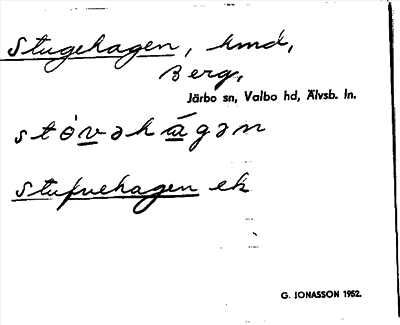 Stugehagen, hmd,
Berg,
Järbo sn, Valbo hd, Älvsb. ln.
stóvəhágən
stufvehagen ek
G. JONASSON 1952.